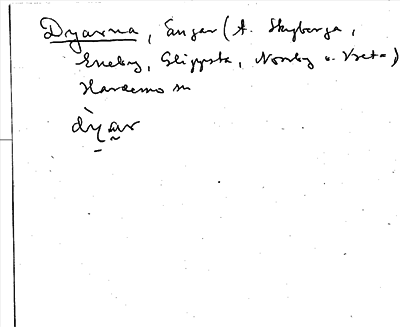 Dyarna, Ängar (t. Skyberga,
Eneby, Glippsta, Norrby o. Vreta)
Hardemo sn
dy̱ar